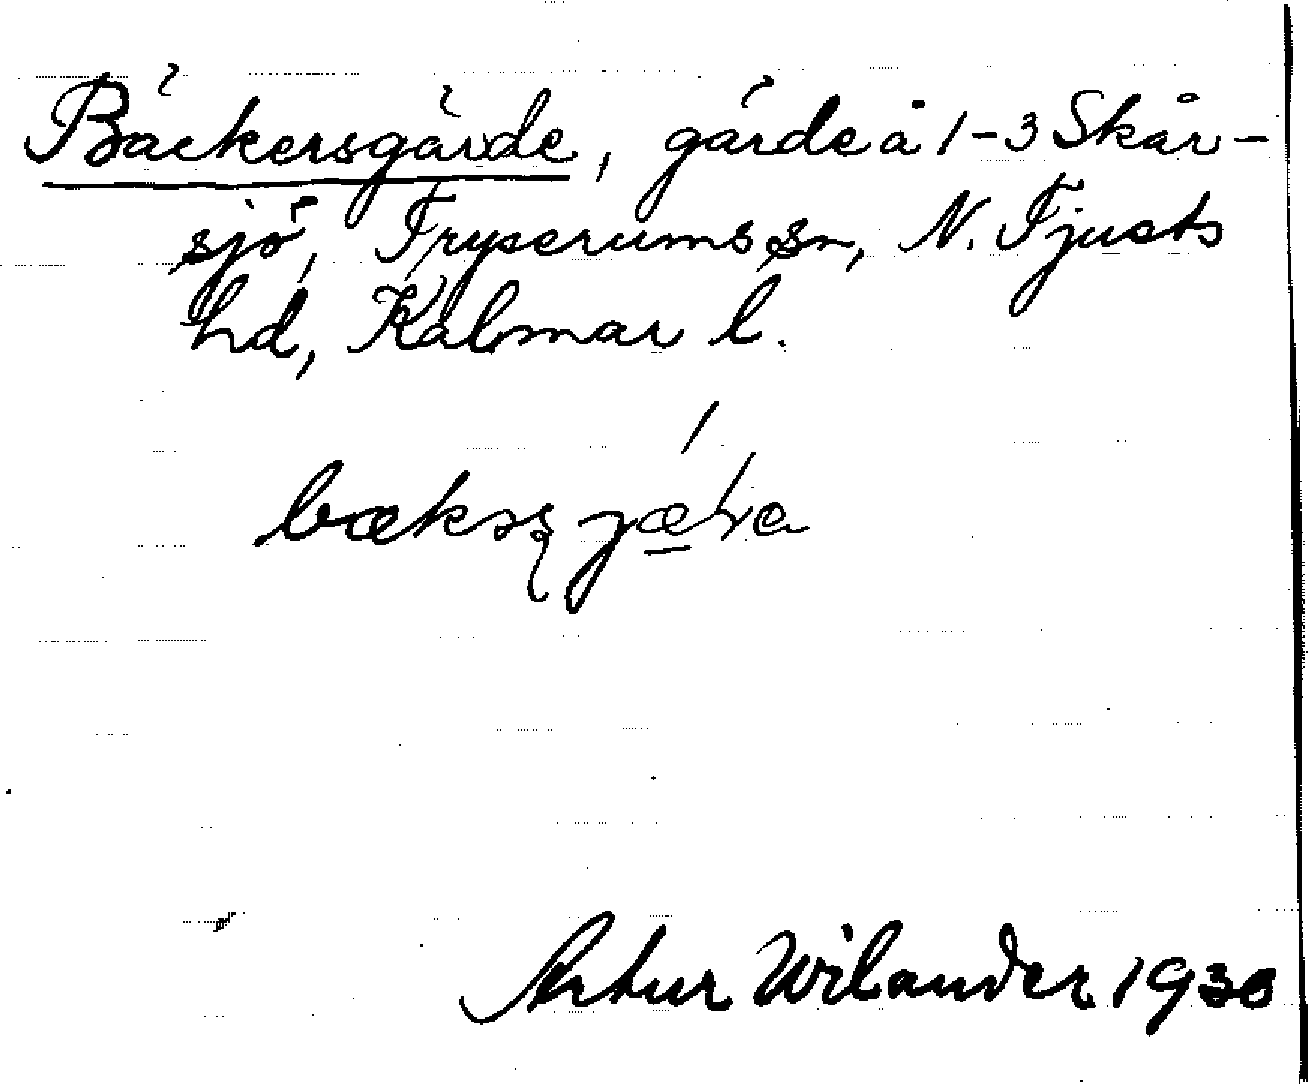 Bäckersgärde, gärde å 1-3 Skår-
sjö, Tryserums sn, N. Tjusts
hd, Kalmar l.
Artur Wilander 1930